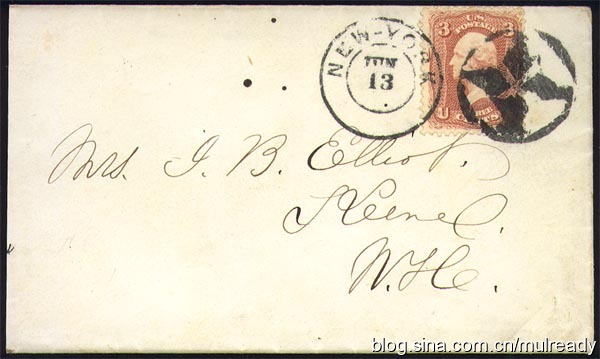 NEW-YORK
JUN
13
3 3
U.S.
POSTAGE
U
CENTS
Mrs. J. B. Elliot.
Keene
N.H.
blog.sina.com.cn/mulready